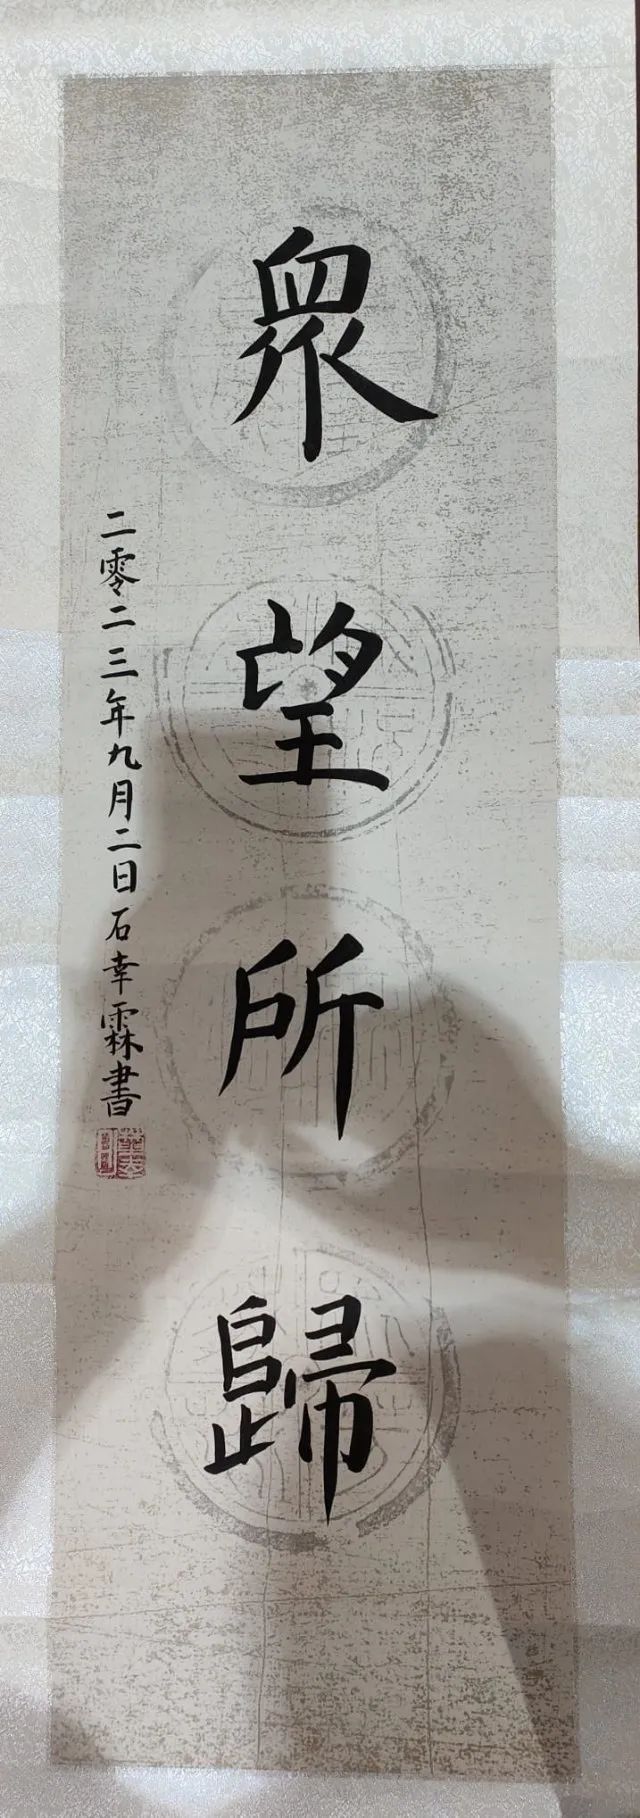 眾望所歸
二零二三年九月二日石幸霖書